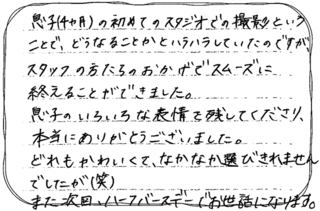 息子(4ヶ月)の初めてのスタジオでの撮影という
ことで、どうなることかとハラハラしていたのですが、
スタッフの方たちのおかげでスムーズに
終えることができました。
息子のいろいろな表情で残してくださり、
本当にありがとうございました。
どれもかわいくて、なかなか選びきれません
でしたが(笑)
また次回、ハーフバースデーでお世話になります。